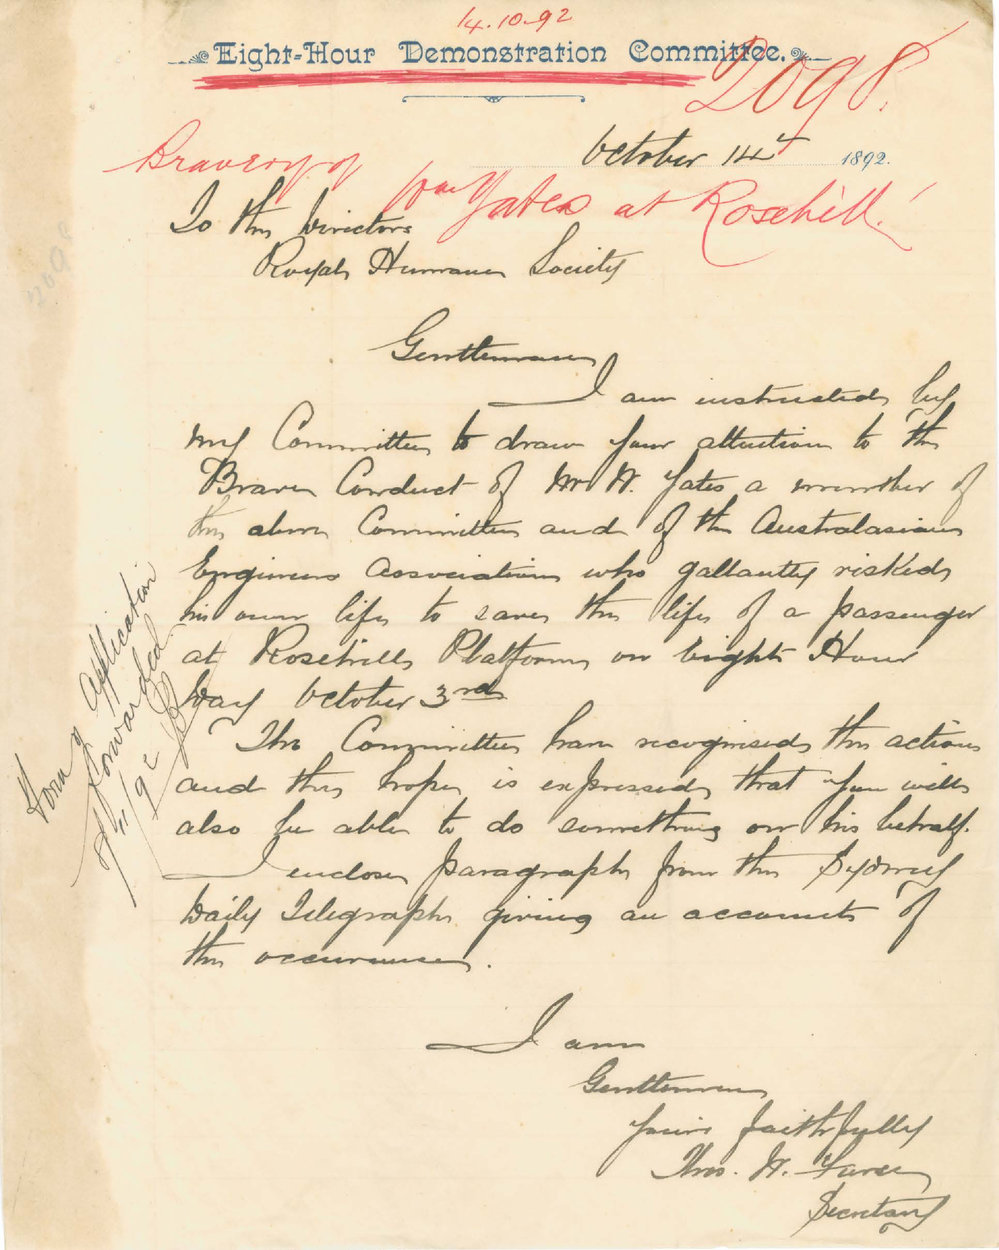 14.10.92
Eight-Hour Demonstration Committee.
2098.
October 14th 1892.
Bravery of Wm Yates at Rosehill!
To the Directors
Royal Humane Society
Gentlemen
I am instructed by
my Committee to draw your attention to the
Brave Conduct of Mr W. Yates a member of
the above Committee and of the Australasian
Engineers Association who gallantly risked
his own life to save the life of a passenger
at Rosehill Platform on Eight Hour
Day October 3rd
The Committee have recognised the action
and the hope is expressed that you will
also be able to do something on his behalf.
I enclose paragraph from the Sydney
Daily Telegraph giving an account of
the occurrence.
I am
Gentlemen
Yours faithfully
Thos. W.
Secretary
Form of Application
Forwarded
2098